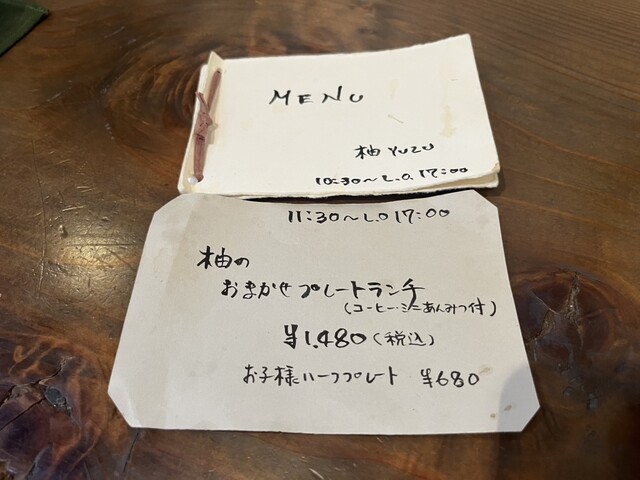 MENU
柚 YUZU
10:30～L.O.17:00
11:30～L.O 17:00
柚の
おまかせプレートランチ
(コーヒー・ミニあんみつ付)
¥1,480(税込)
お子様ハーフプレート ¥680